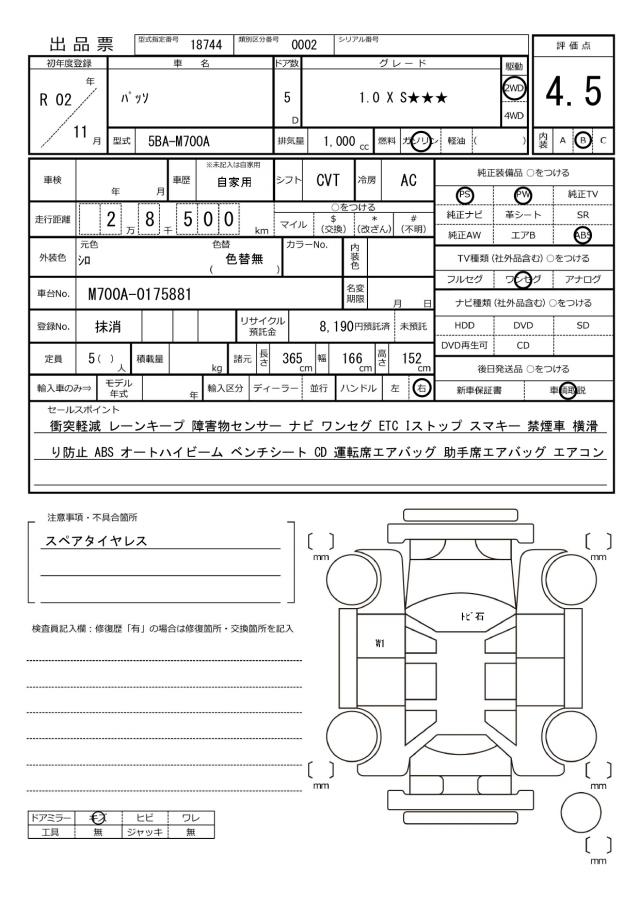 出品票 型式指定番号 18744 類別区分番号 0002 シリアル番号
評価点
4.5
内装 A B C
初年度登録 車名 ドア数 グレード 駆動
R 02 年 11 月 ﾊﾟｯｿ 5 D 1.0 X S★★★ 2WD 4WD
型式 5BA-M700A 排気量 1,000 cc 燃料 ガソリン 軽油 ( )
車検 年 月 車歴 ※未記入は自家用 自家用 シフト CVT 冷房 AC
走行距離 2 万 8 千 5 0 0 km
○をつける
マイル $ (交換) * (改ざん) # (不明)
外装色 元色 ｼﾛ 色替 ( 色替無 ) カラーNo. 内装色
車台No. M700A-0175881 名変期限 月 日
登録No. 抹消 リサイクル預託金 8,190円預託済 未預託
定員 5 ( ) 人 積載量 kg 諸元 長さ 365 cm 幅 166 cm 高さ 152 cm
輸入車のみ⇒ モデル年式 年 輸入区分 ディーラー 並行 ハンドル 左 右
純正装備品 ○をつける
PS PW 純正TV
純正ナビ 革シート SR
純正AW エアB ABS
TV種類 (社外品含む) ○をつける
フルセグ ワンセグ アナログ
ナビ種類 (社外品含む) ○をつける
HDD DVD SD
DVD再生可 CD
後日発送品 ○をつける
新車保証書 車輌取説
セールスポイント
衝突軽減 レーンキープ 障害物センサー ナビ ワンセグ ETC Iストップ スマキー 禁煙車 横滑
り防止 ABS オートハイビーム ベンチシート CD 運転席エアバッグ 助手席エアバッグ エアコン
注意事項・不具合箇所
スペアタイヤレス
検査員記入欄：修復歴「有」の場合は修復箇所・交換箇所を記入
mm
mm
ﾄﾋﾞ石
W1
mm
mm
mm
ドアミラー キズ ヒビ ワレ
工具 無 ジャッキ 無